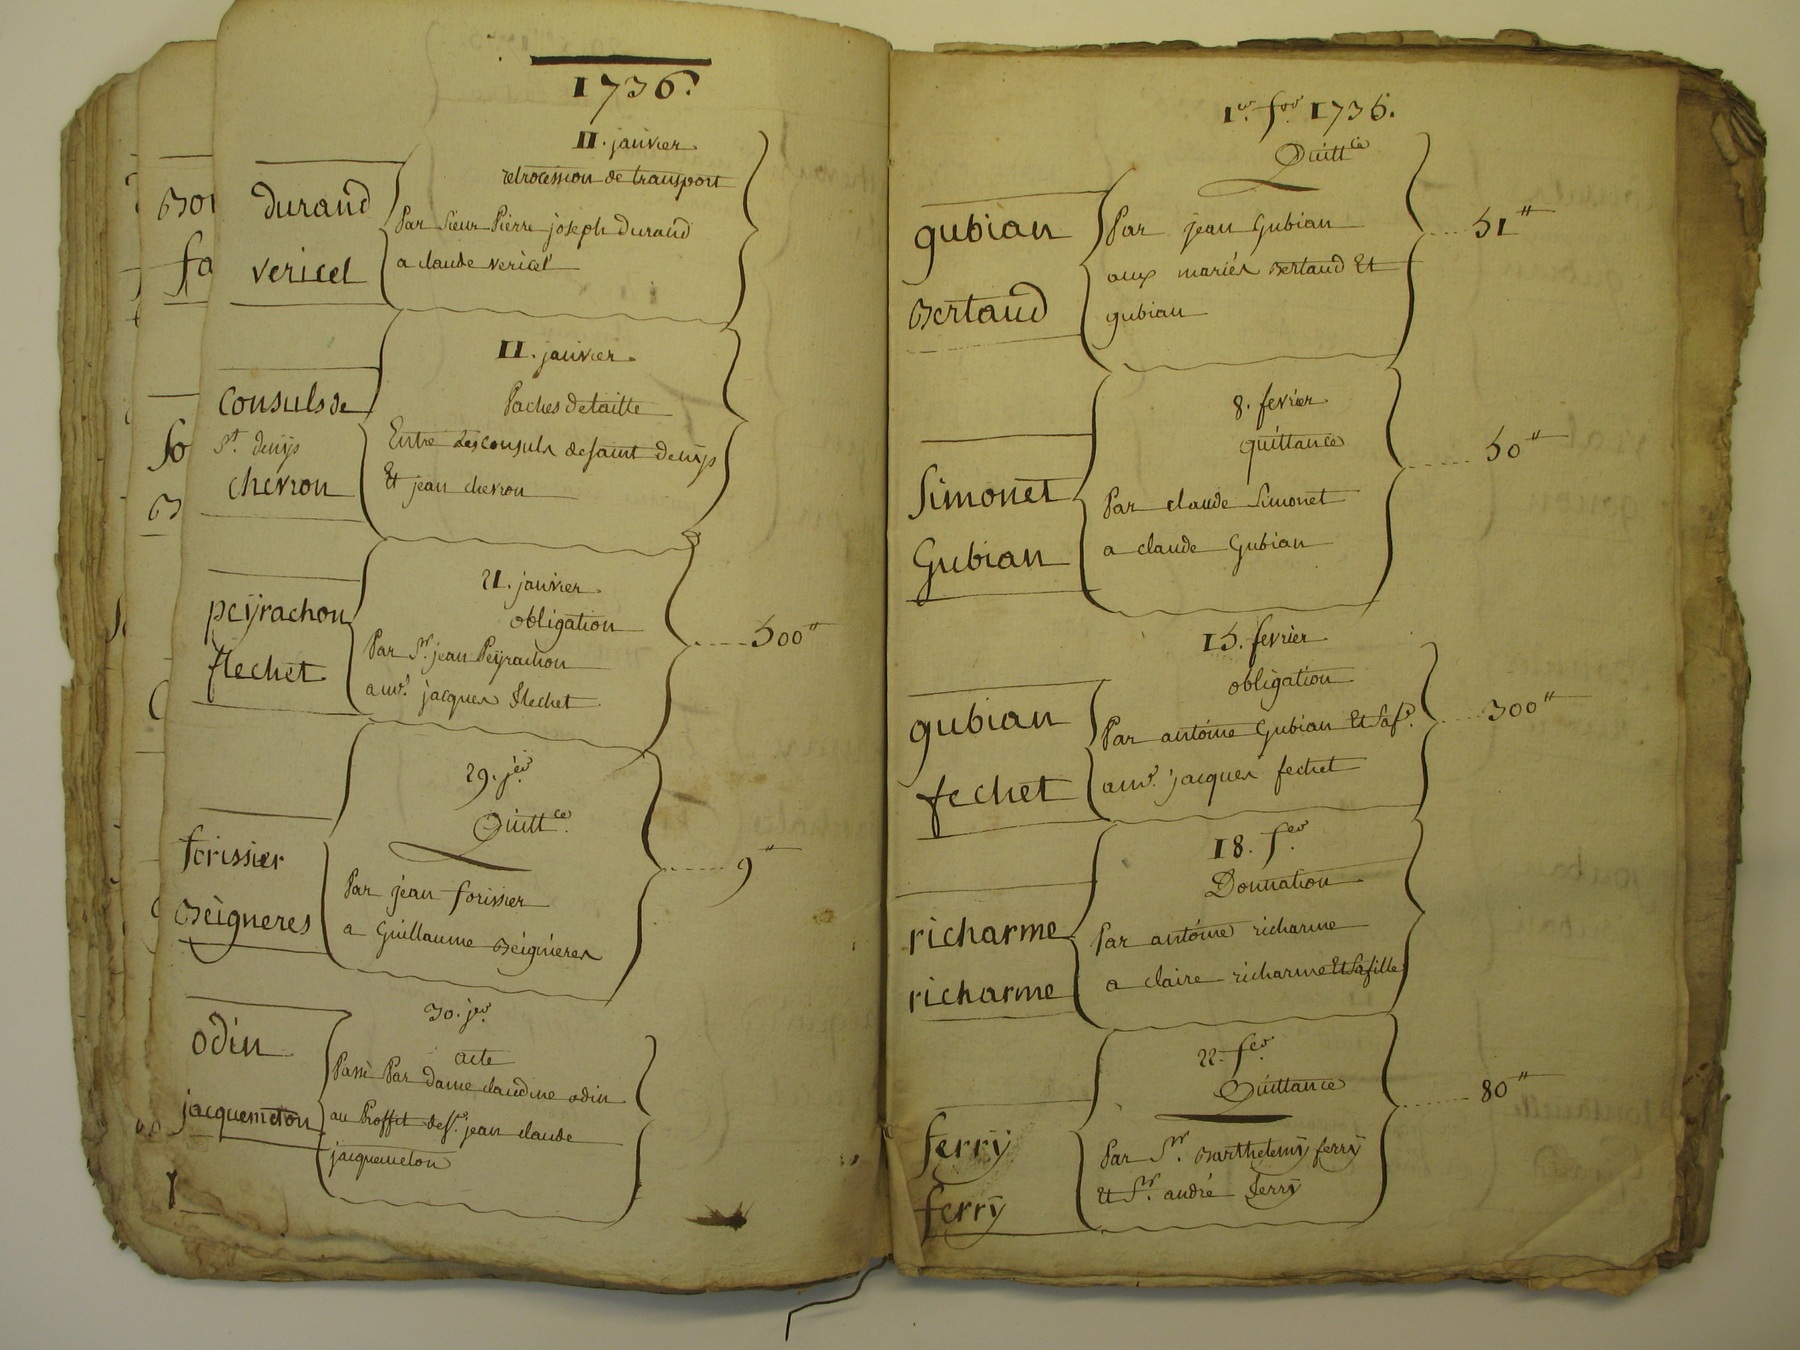 1736.
11. janvier
retrocession de transport
durand
Par Sieur Pierre joseph durand
vericel
a claude vericel
11. janvier
Paches detaille
consuls de
St. denys
Entre les consuls de saint denys
chevron
Et jean chevron
21. janvier
obligation
peÿrachon
Par Sr. jean Peÿrachon
500"
flechet
a mr. jacques flechet
29. jer
Quittce.
forissier
Par jean forissier
9"
Beigneres
a Guillaume Beignieres
30. jer
odin
acte
Passé Par dame claudine odin
jacquemeton
au Proffit de sr. jean claude
jacquemeton
1er. fer 1736.
Quittce
gubian
Par jean Gubian
51"
aux mariés Bertaud Et
Bertaud
gubian
8. fevrier
quittance
50"
Simonet
Par claude Simonet
Gubian
a claude Gubian
15. fevrier
obligation
gubian
Par antoine Gubian Et Saf.
300"
fechet
a mr. jacques fechet
18. fer.
Donnation
richarme
Par antoine richarme
richarme
a claire richarme Et Sa fille
22. fer.
Quittance
80"
ferrÿ
Par Sr. Barthelemÿ ferrÿ
ferrÿ
Et Sr. andré ferrÿ